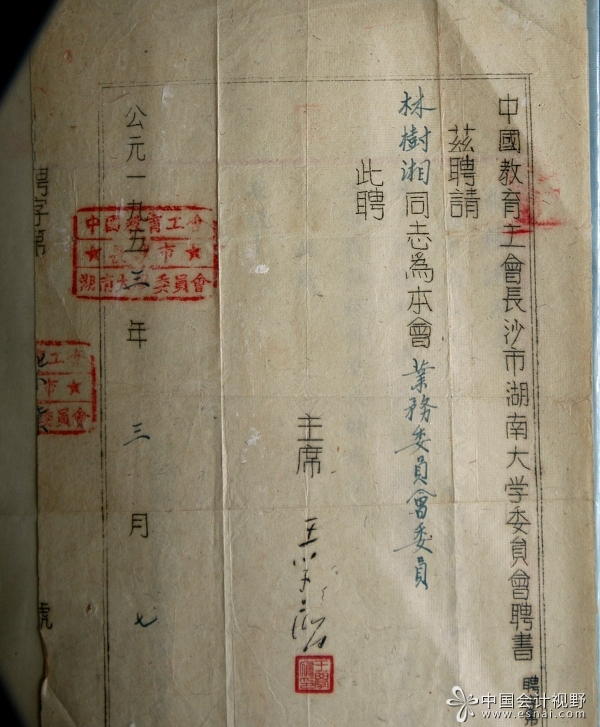 中國教育工會長沙市湖南大学委員會聘書
聘
茲聘請
林樹湘同志爲本會業務委員會委員
此聘
主席
公元一九五三年三月七
中國教育工會
★長沙市★
湖南大学委員會
聘字第
號
工會
市★
委員會
中国会计视野
www.esnai.com